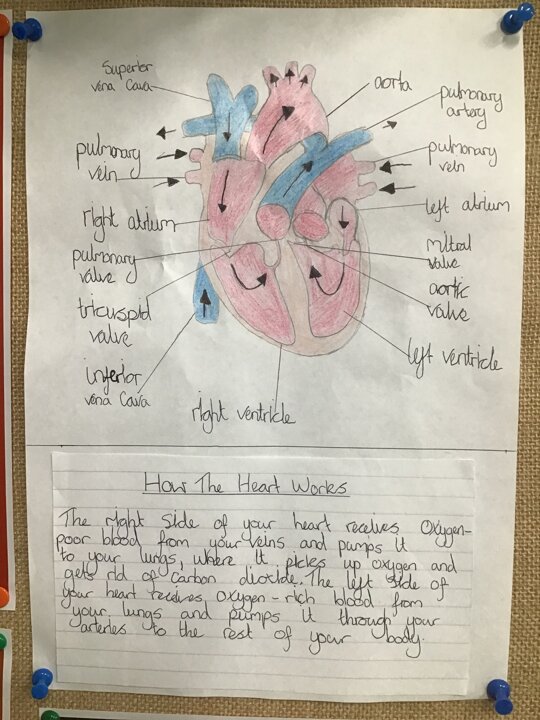 Superior
vena Cava
aorta
pulmonary
artery
pulmonary
vein
pulmonary
vein
right atrium
left atrium
pulmonary
valve
mitral
valve
tricuspid
valve
aortic
valve
inferior
vena Cava
left ventricle
right ventricle
How The Heart Works
The right Side of your heart receives Oxygen-
poor blood from your veins and pumps it
to your lungs, where it picks up oxygen and
gets rid of carbon dioxide. The left side of
your heart receives oxygen-rich blood from
your lungs and pumps it through your
arteries to the rest of your body.